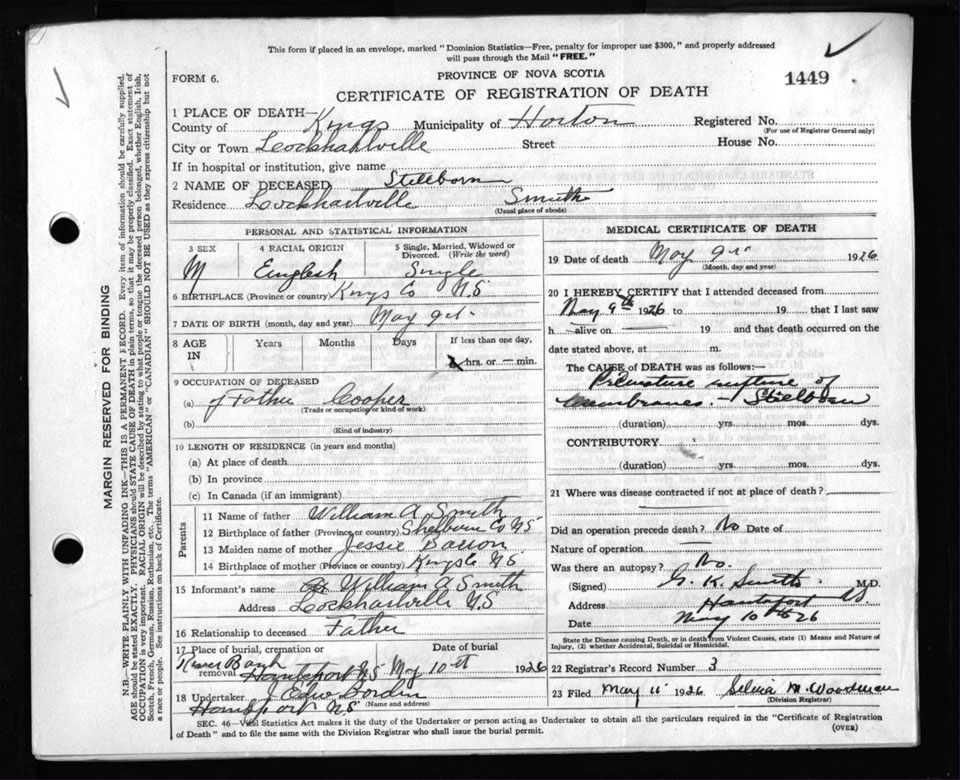 This form if placed in an envelope, marked "Dominion Statistics—Free, penalty for improper use $300," and properly addressed
will pass through the Mail "FREE."
FORM 6.
PROVINCE OF NOVA SCOTIA
1449
CERTIFICATE OF REGISTRATION OF DEATH
1 PLACE OF DEATH—
County of Kings Municipality of Horton Registered No.
(For use of Registrar General only)
City or Town Lockhartville Street House No.
If in hospital or institution, give name
2 NAME OF DECEASED Stillborn
Residence Lockhartville Smith
(Usual place of abode)
PERSONAL AND STATISTICAL INFORMATION
3 SEX 4 RACIAL ORIGIN 5 Single, Married, Widowed or Divorced. (Write the word)
M English Single
6 BIRTHPLACE (Province or country) Kings Co N.S
7 DATE OF BIRTH (month, day and year) May 9th
8 AGE IN Years Months Days If less than one day,
hrs. or — min.
9 OCCUPATION OF DECEASED
(a) of Father Cooper
(Trade or occupation or kind of work)
(b)
(Kind of industry)
10 LENGTH OF RESIDENCE (in years and months)
(a) At place of death
(b) In province
(c) In Canada (if an immigrant)
Parents
11 Name of father William A Smith
12 Birthplace of father (Province or country) Shelburn Co NS
13 Maiden name of mother Jessie Barron
14 Birthplace of mother (Province or country) Kings Co NS
15 Informant's name William A Smith
Address Lockhartville N.S
16 Relationship to deceased Father
17 Place of burial, cremation or removal Date of burial
River Bank
Hantsport NS May 10th 1926
18 Undertaker J Edw Borden
(Name and address)
Hantsport NS
MEDICAL CERTIFICATE OF DEATH
19 Date of death May 9th 1926
(Month, day and year)
20 I HEREBY CERTIFY that I attended deceased from
May 9th 1926 to 19 that I last saw
h alive on 19 and that death occurred on
date stated above, at m.
The CAUSE of DEATH was as follows:—
Premature rupture of
membranes. — Stillborn
(duration) yrs. mos. dys.
CONTRIBUTORY
(duration) yrs. mos. dys.
21 Where was disease contracted if not at place of death?
Did an operation precede death? No Date of
Nature of operation —
Was there an autopsy? No.
(Signed) G. K. Smith M.D.
Address Hantsport NS
Date May 10th 26
State the Disease causing Death, or in death from Violent Causes, state (1) Means and Nature of
Injury, (2) whether Accidental, Suicidal or Homicidal.
22 Registrar's Record Number 3
23 Filed May 11 1926 Selvia M Woodman
(Division Registrar)
SEC. 46—Vital Statistics Act makes it the duty of the Undertaker or person acting as Undertaker to obtain all the particulars required in the "Certificate of Registration
of Death" and to file the same with the Division Registrar who shall issue the burial permit.
(OVER)
MARGIN RESERVED FOR BINDING
N.B.—WRITE PLAINLY WITH UNFADING INK—THIS IS A PERMANENT RECORD. Every item of information should be carefully supplied.
AGE should be stated EXACTLY. PHYSICIANS should STATE CAUSE OF DEATH in plain terms, so that it may be properly classified. Exact statement of
OCCUPATION is very important. RACIAL ORIGIN will be described by stating to what people or tongue the deceased person belonged, whether English, Irish,
Scotch, French, German, Russian, Ruthenian, etc. The terms "AMERICAN" or "CANADIAN" SHOULD NOT BE USED as they express citizenship but not
a race or people. See instructions on back of Certificate.